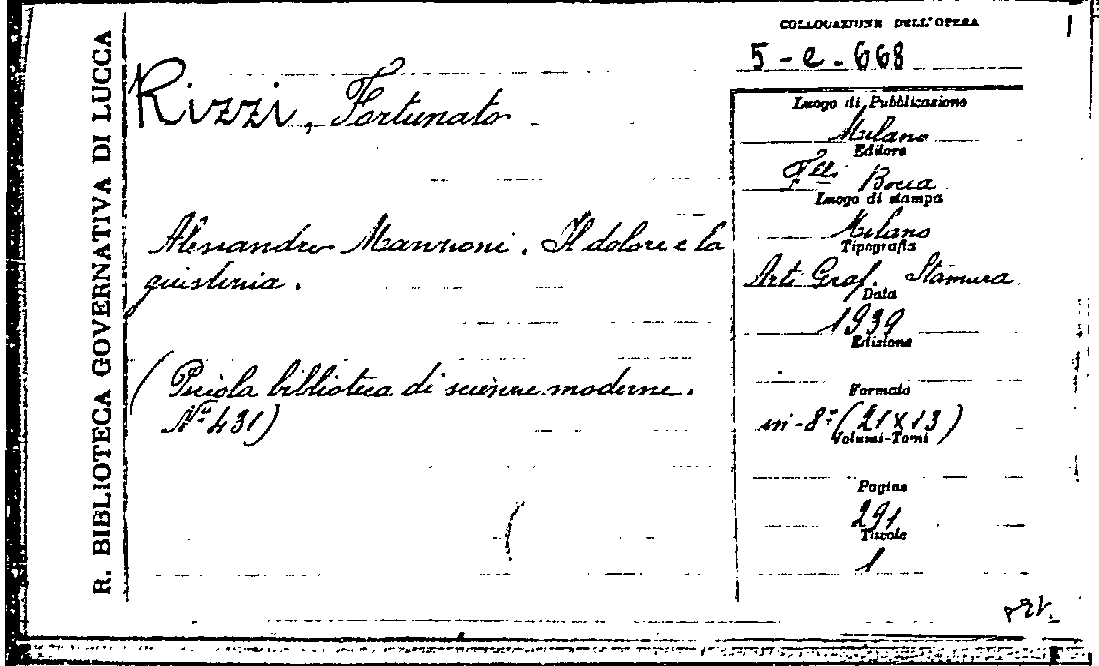 R. BIBLIOTECA GOVERNATIVA DI LUCCA
COLLOCAZIONE DELL'OPERA
5-e-668
Rizzi, Fortunato
Alessandro Manzoni. Il dolore e la
giustizia.
(Piccola biblioteca di scienze moderne.
Nº 431)
Luogo di Pubblicazione
Milano
Editore
F.lli Bocca
Luogo di stampa
Milano
Tipografia
Arti Graf. Stamura
Data
1939
Edizione
Formato
in-8º (21x13)
Volumi-Tomi
Pagine
291
Tavole
1